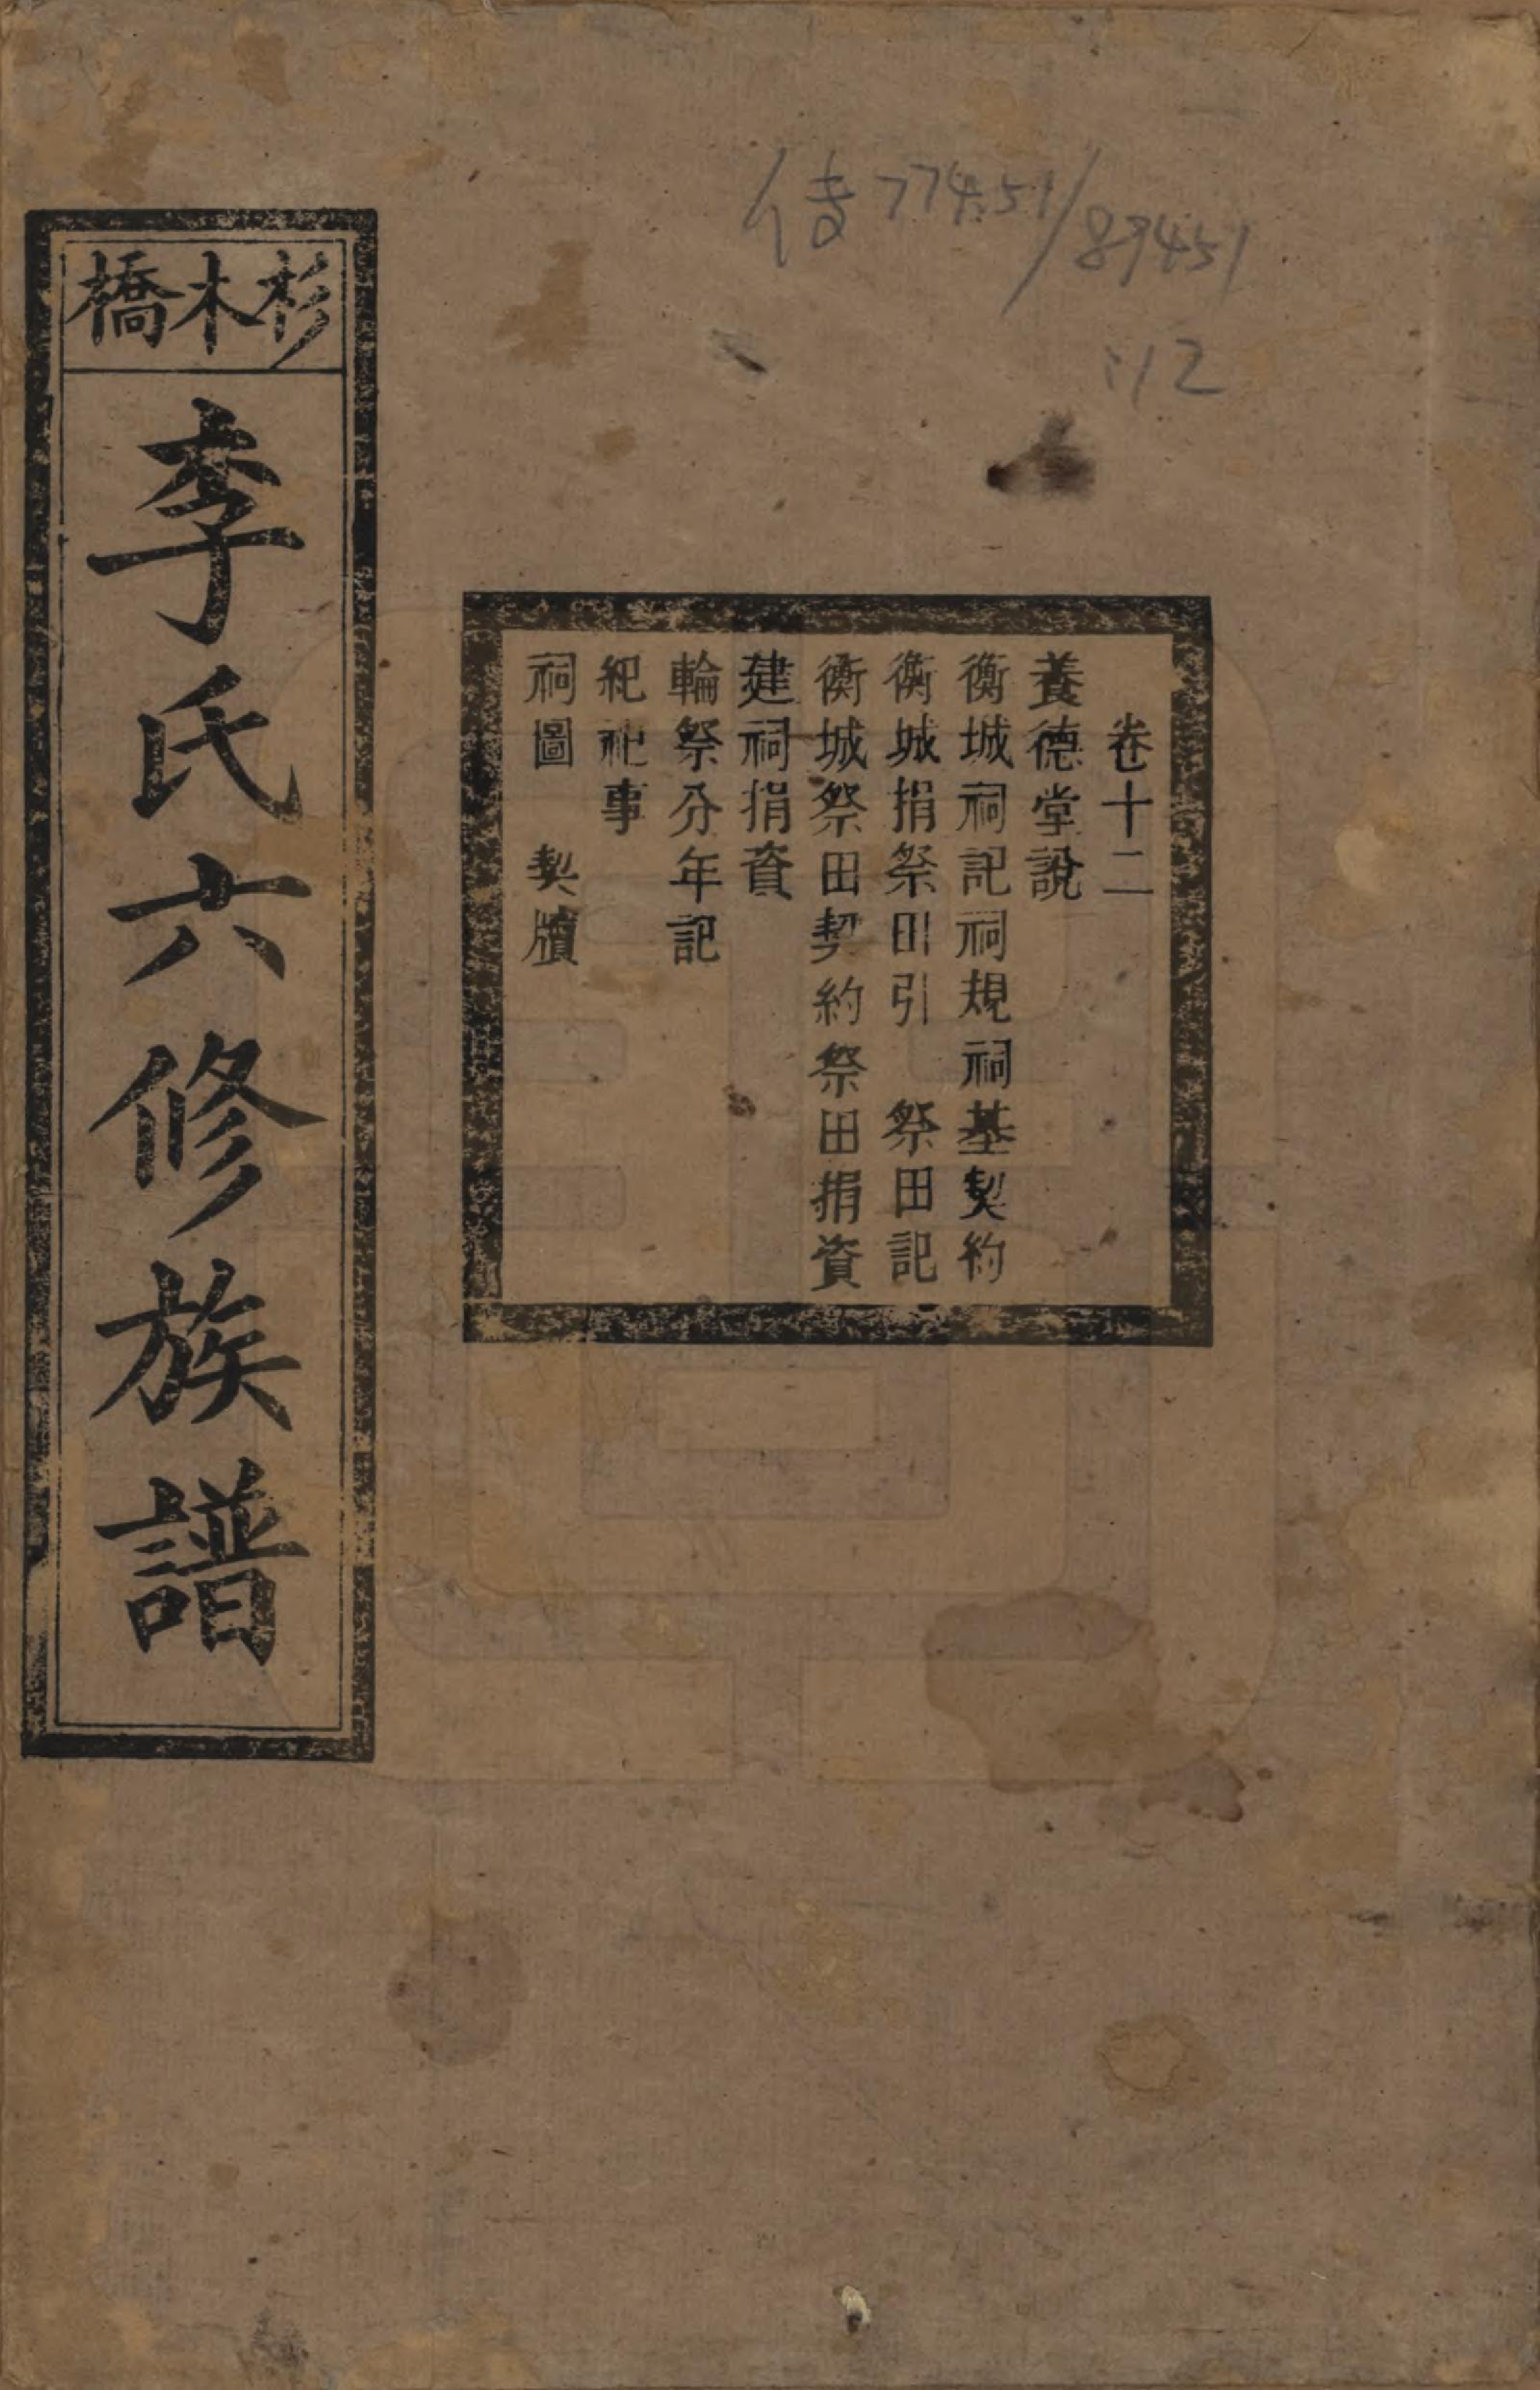 杉木橋
李氏六修族譜
卷十二
養德堂說
衡城祠記祠規祠基契約
衡城捐祭田引　祭田記
衡城祭田契約祭田捐資
建祠捐資
輪祭分年記
紀祀事
祠圖　契牘
傳774.51/89451
:12